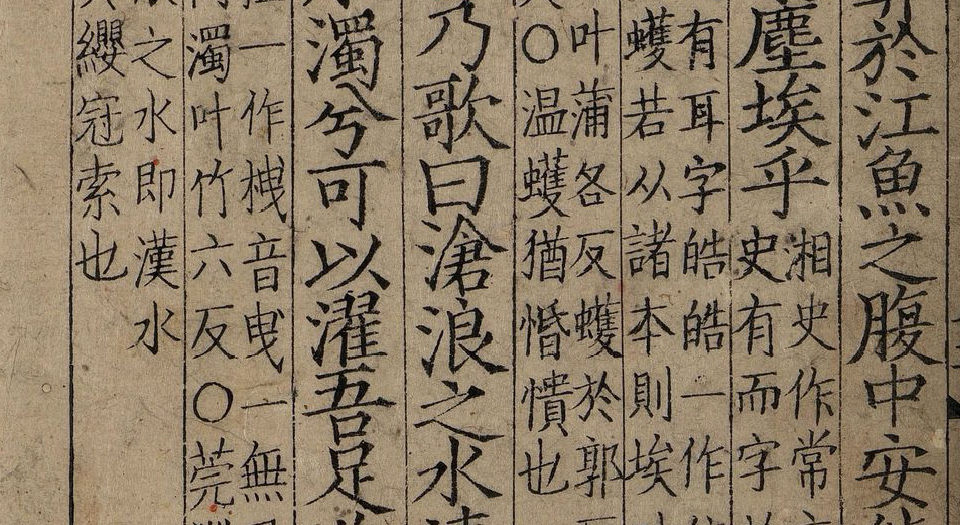 於江魚之腹中安
塵埃乎
相史作常
史有而字
有耳字皓皓一作
蠖若从諸本則埃
叶蒲各反蠖於郭
○温蠖猶惛憒也
乃歌曰滄浪之水
濁兮可以濯吾足
一作栧音曳一無
濁叶竹六反○莞
之水即漢水
纓冠索也